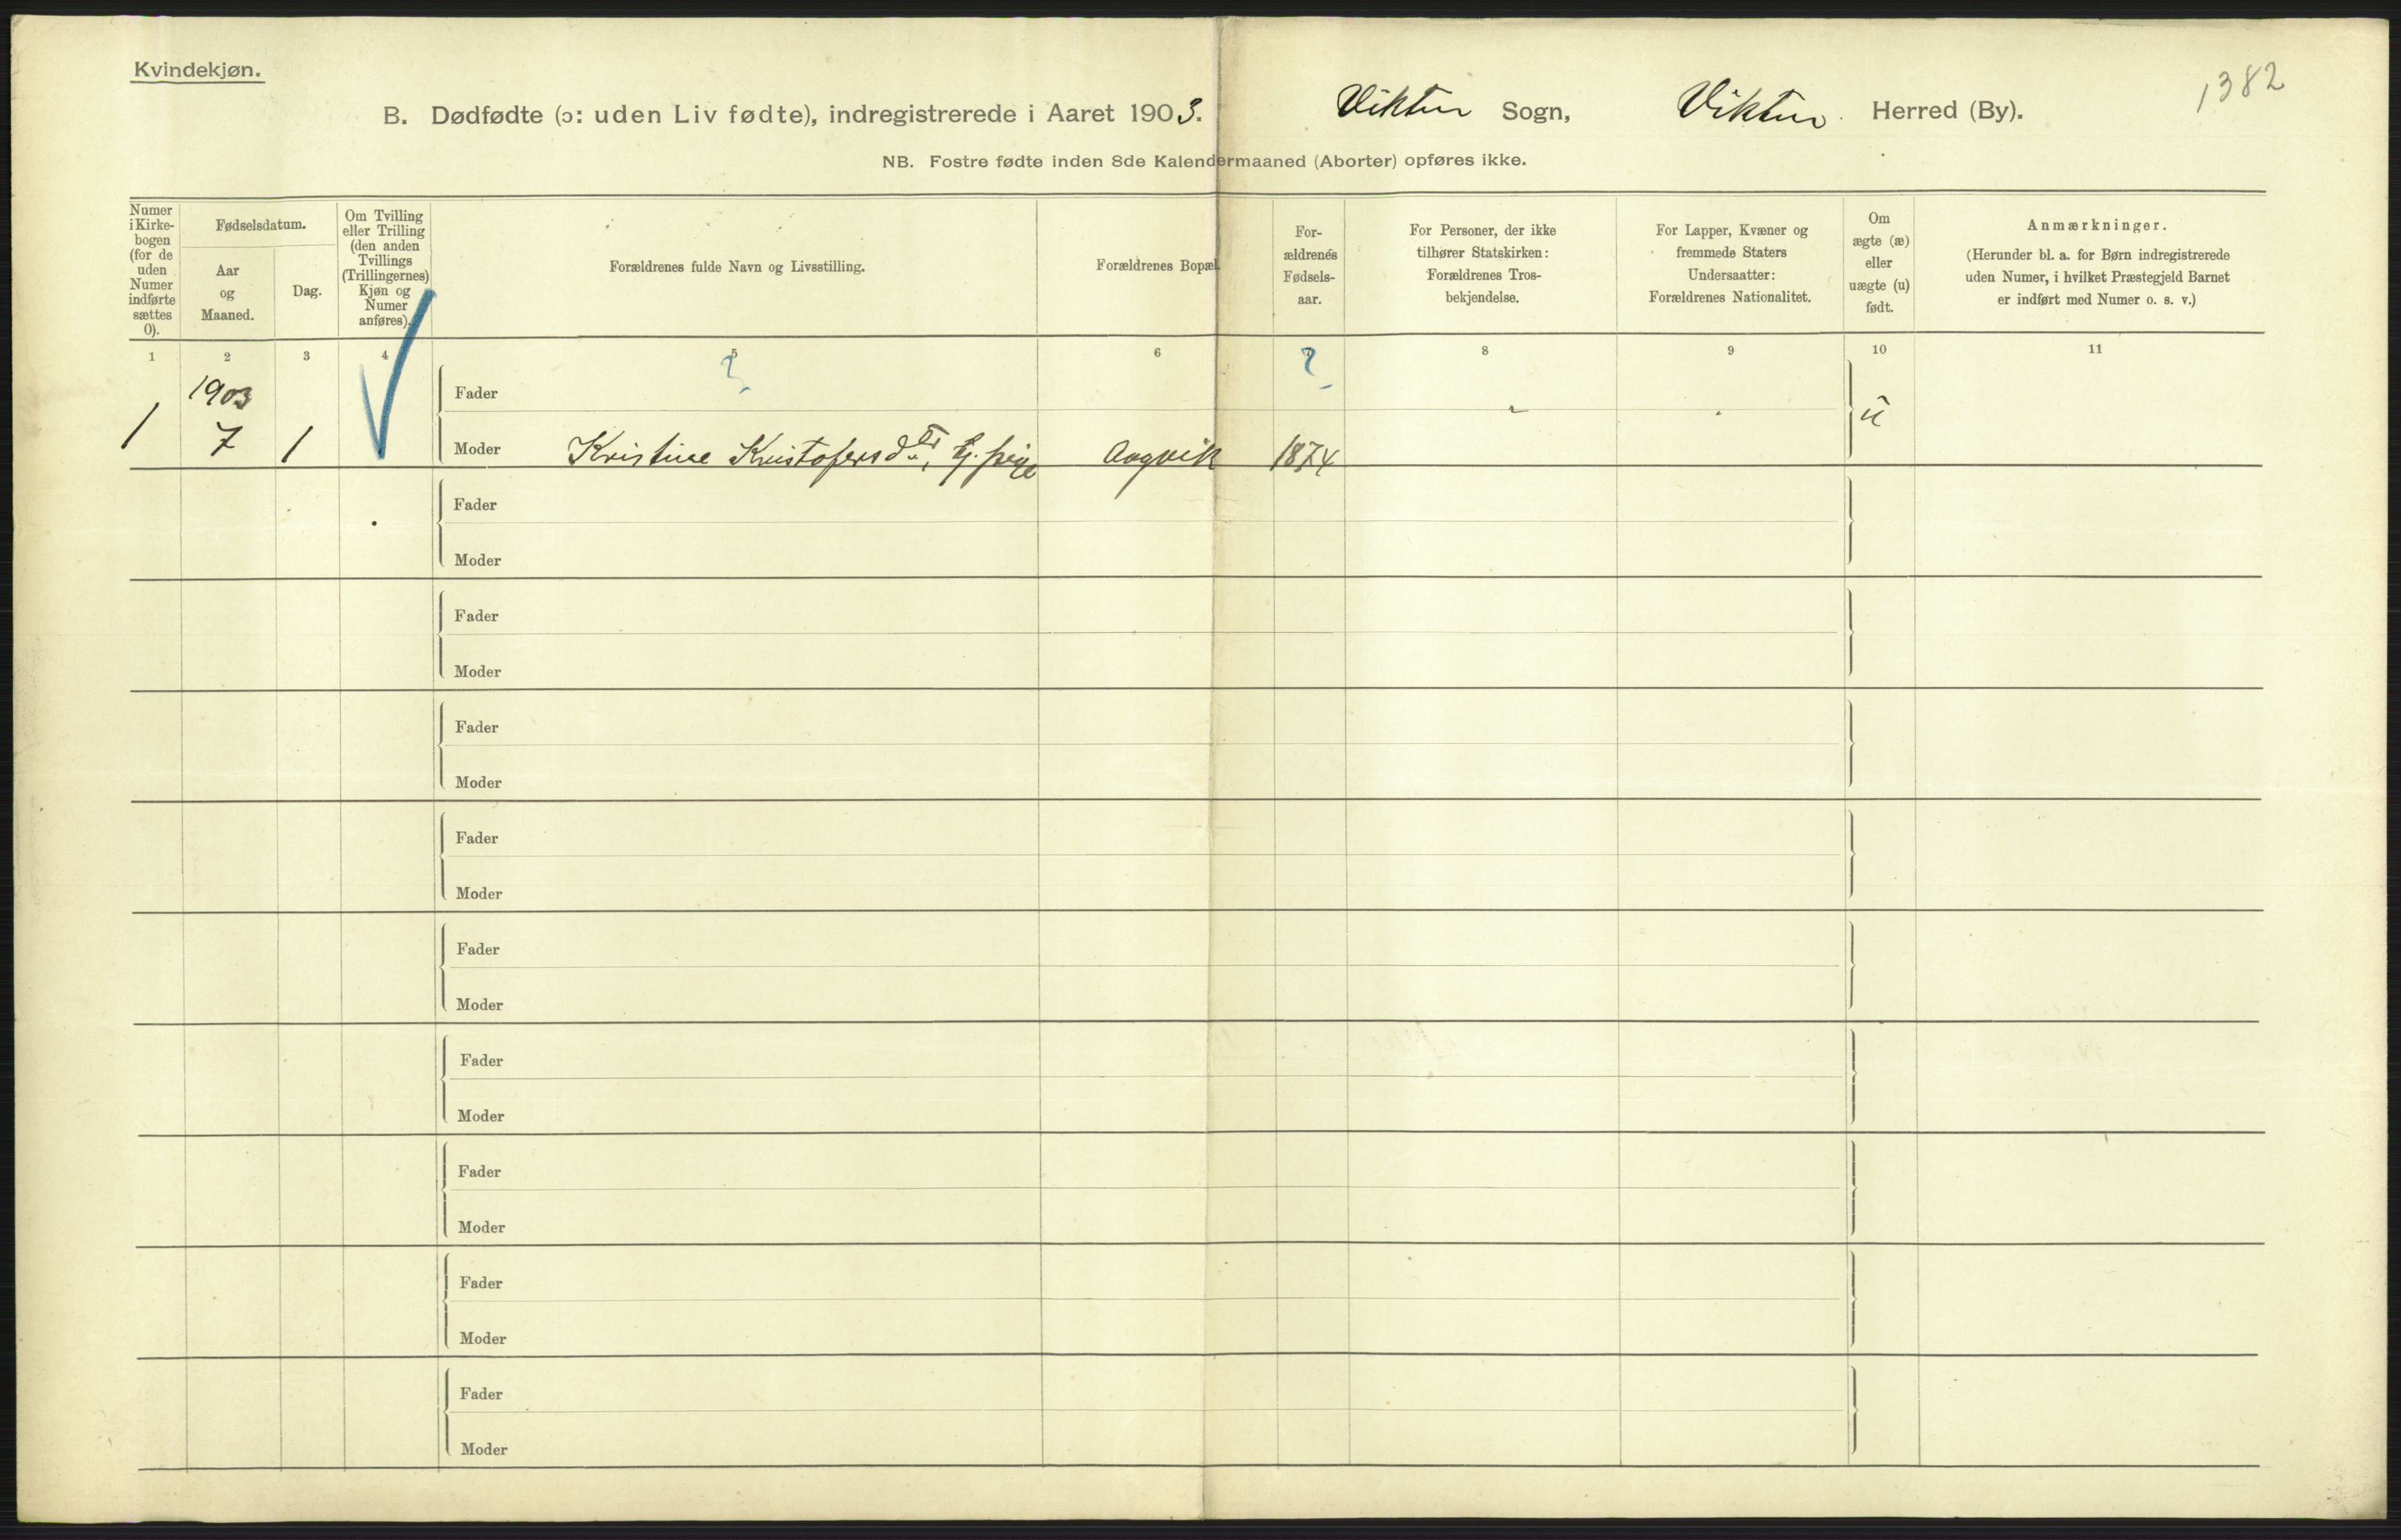 Kvindekjøn.
1382
B. Dødfødte (ɔ: uden Liv fødte), indregistrerede i Aaret 1903. Viktun Sogn, Viktun Herred (By).
NB. Fostre fødte inden 8de Kalendermaaned (Aborter) opføres ikke.
Numer i Kirkebogen (for de uden Numer indførte sættes 0).
Fødselsdatum.
Aar og Maaned.
Dag.
Om Tvilling eller Trilling (den anden Tvillings (Trillingernes) Kjøn og Numer anføres).
Forældrenes fulde Navn og Livsstilling.
Forældrenes Bopæl.
For-
ældrenes
Fødsels-
aar.
For Personer, der ikke
tilhører Statskirken:
Forældrenes Tros-
bekjendelse.
For Lapper, Kvæner og
fremmede Staters
Undersaatter:
Forældrenes Nationalitet.
Om
ægte (æ)
eller
uægte (u)
født.
Anmærkninger.
(Herunder bl. a. for Børn indregistrerede
uden Numer, i hvilket Præstegjeld Barnet
er indført med Numer o. s. v.)
1 2 3 4 5 6 8 9 10 11
1903
Fader ? ?
1 7 1 Moder Kristine Kristofersdtr, tj. pige Aagvik 1874 u
Fader
Moder
Fader
Moder
Fader
Moder
Fader
Moder
Fader
Moder
Fader
Moder
Fader
Moder
Fader
Moder
Fader
Moder